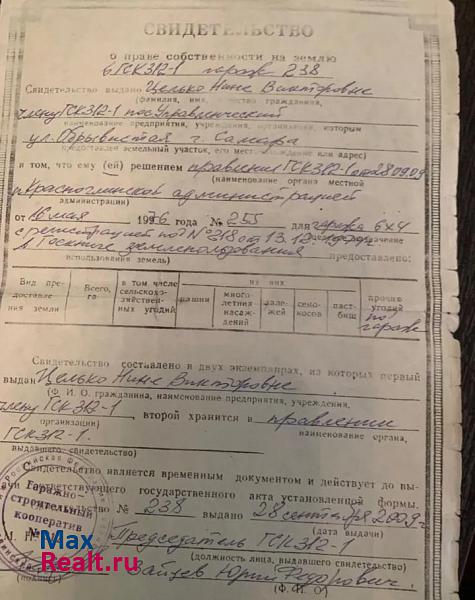 СВИДЕТЕЛЬСТВО
о праве собственности на землю
в ГСК312-1 гараж 238
Свидетельство выдано Целько Нине Викторовне
(фамилия, имя, отчество гражданина,
члену ГСК 312-1 пос. Управленческий
наименование предприятия, учреждения, организации, которым
ул. Обрывистая г. Самара
предоставлен земельный участок, его местонахождение или адрес)
в том, что ему (ей) решением правления ГСК312-1 от 28.09.09
(наименование органа местной
и Красноглинской администрацией
администрации)
от 16 мая 1996 года № 255 для гаража 6х4
с регистрацией № 318 от 13.12.
землепользования предоставлено:
использования земель)
Вид предоставления земли
Всего, га
в том числе сельскохозяйственных угодий
из них
пашни
многолетних насаждений
залежей
сенокосов
пастбищ
прочих угодий
по гараж
Свидетельство составлено в двух экземплярах, из которых первый
выдан Целько Нине Викторовне
(Ф. И. О. гражданина, наименование предприятия, учреждения,
члену ГСК 312-1 второй хранится в правлении
организации) наименование органа,
ГСК312-1.
выдавшего свидетельство)
Свидетельство является временным документом и действует до вы-
дачи соответствующего государственного акта установленной формы.
Свидетельство № 238 выдано 28 сентября 2009 г
(дата выдачи)
Председатель ГСК312-1
(должность лица, выдавшего свидетельство)
Зайцев Юрий Федорович.
(подпись) (Ф. И. О.)
Гаражно-
строительный
кооператив
М. П.
Max
Realt.ru